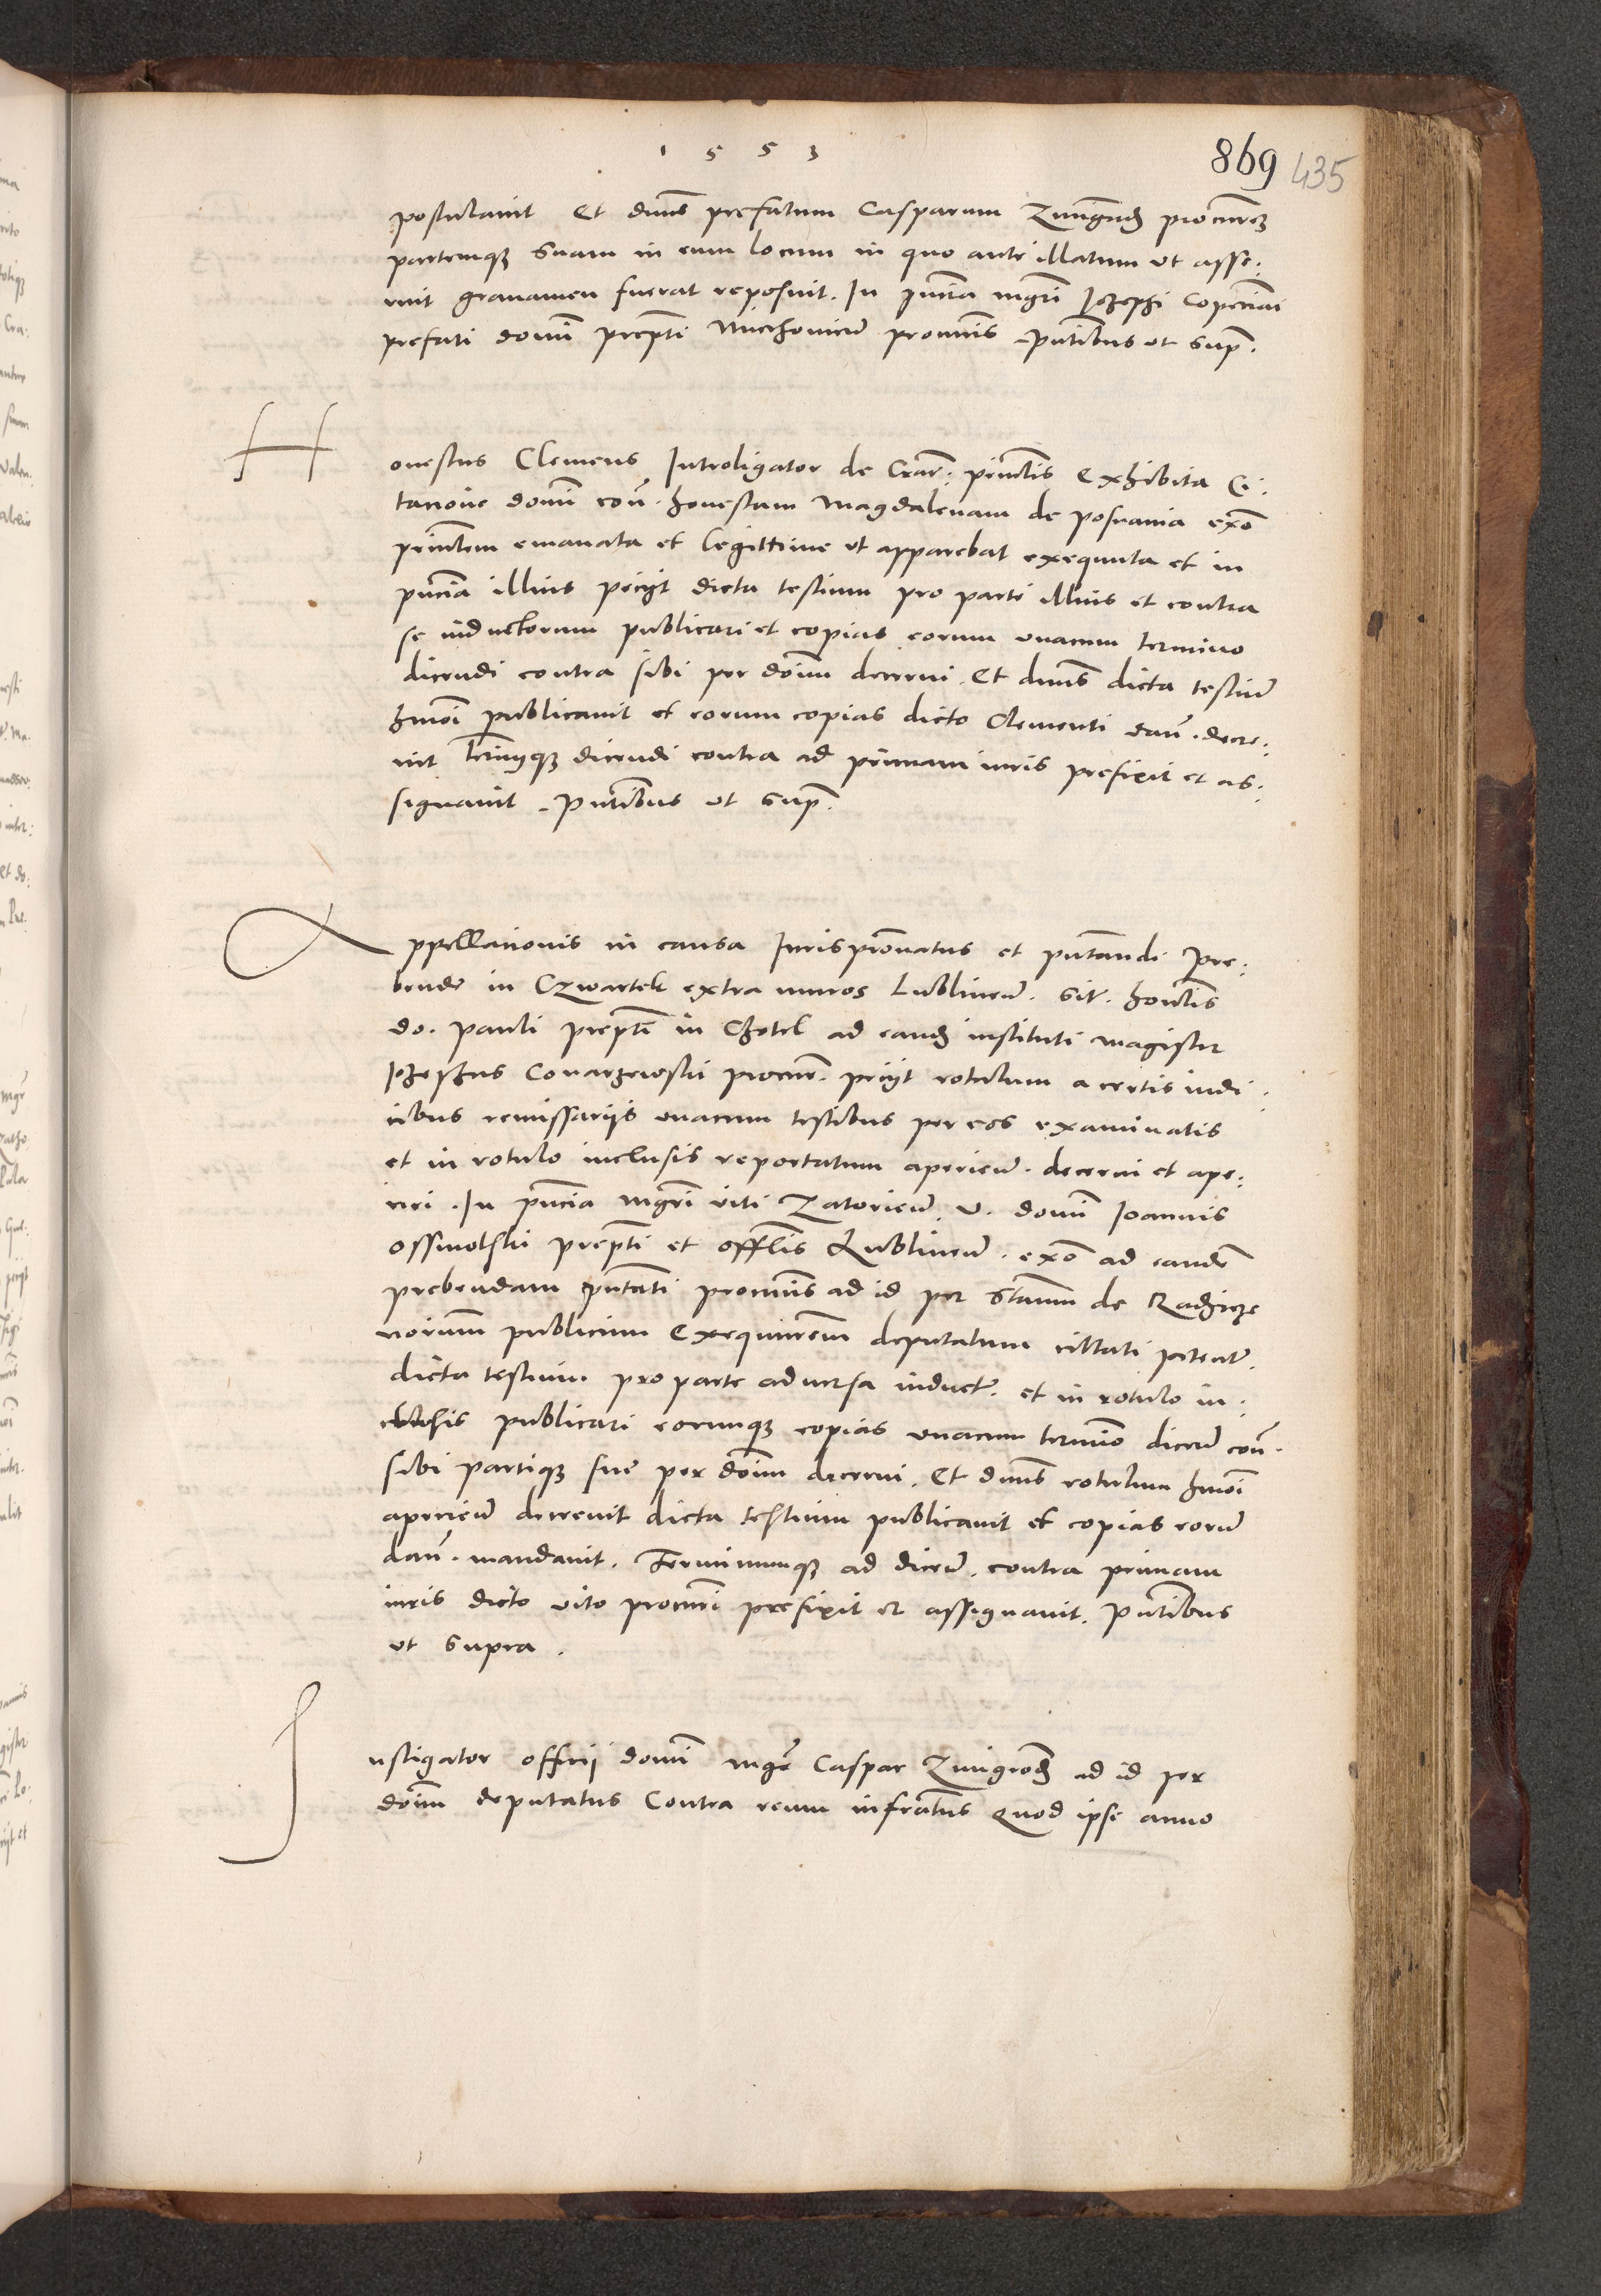 1553
869 435
postulavit Et dnus prefatum Casparum Zmigrod procurem
partemq suam in eum locum in quo ante illatum ut asse:
ruit gravamen fuerat reposuit. In pntia mgri Jozephi
prefati domi prepti Miechovien procuris pntibus ut supr.
Honestus Clemens Introligator de Crac: principlis Exhibita Ci:
tatione domi con honestam Magdalenam de Posnania exo
princlem emanata et legittime ut apparebat exequuta et in
pntia illius petijt dicta testium pro parte illius et contra
se inductorum publicari et copias eorum unacum termino
dicendi contra sibi per doim decerni. Et dnus dicta testiu
hmoi publicavit et eorum copias dicto Clementi dan. decre:
vit Terinuq dicendi contra ad primam iuris prefixit et as:
signavit. Pntibus ut supr.
Appellationis in causa Jurispronatus et pntandi Pre:
bende in Czwartek extra muros Lublinen. sit. honlis
do. Pauli prepti in Chotel ad eand instituti Magister
procur. petijt rotulum a certis iudi:
cibus remissarijs unacum testibus per eos examinatis
et in rotulo inclusis reportatum aperien. decerni et ape:
riri. In pntia mgri Viti Zatorien. V. domi Joannis
prepti et offlis Lublinen. exo ad eande
prebendam pntati procuris ad id per Stanm de Radzicze
norium publicum Exequutrem deputatum citati petentr.
dicta testium pro parte adversa induct. et in rotulo in:
clusis publicari eorumq copias unacum termino dicen con.
sibi partiq sue per doim decerni. Et dnus rotulum hmoi
aperien decrevit dicta testium publicavit et copias eoru
dan. mandavit. Terminumq ad dicen. contra primam
iuris dicto Vito procuri prefixit et assignavit. Pntibus
ut supra.
Instigator officij domi mgr Caspar Zmigrod ad id per
doim deputatus Contra reum infratus Quod ipse anno